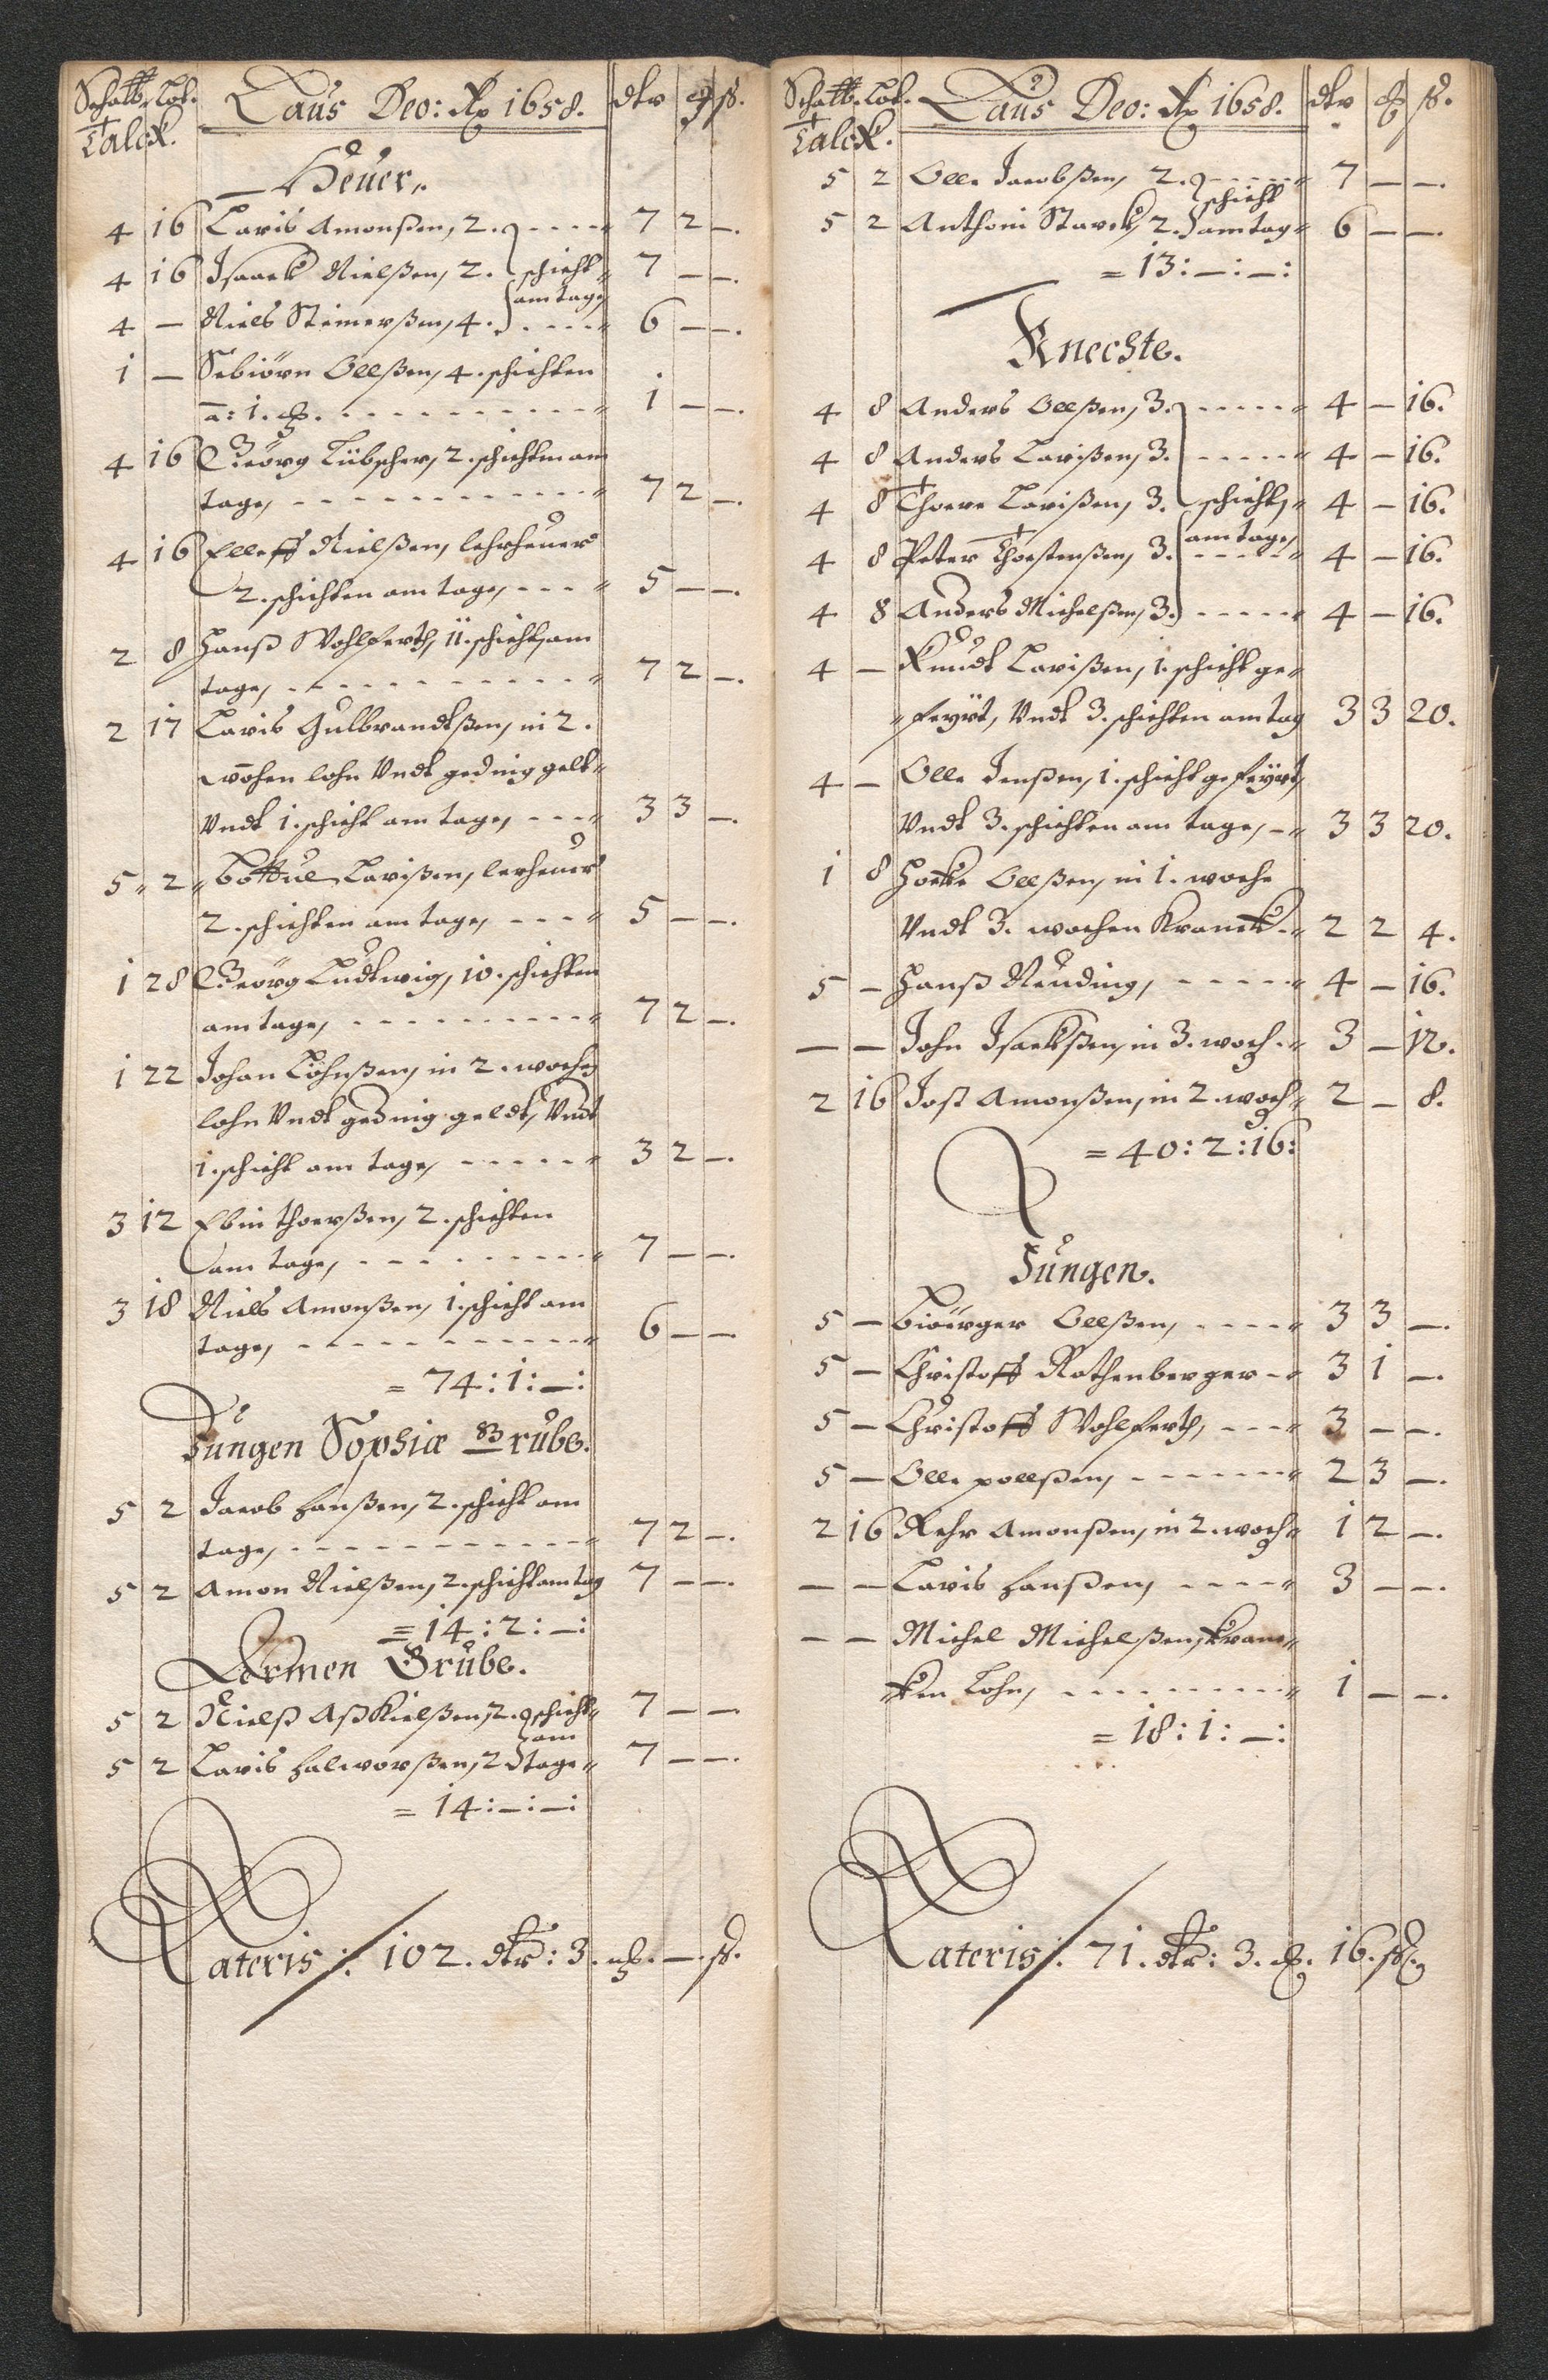 Schatb. Lot. Laus Deo: Ao 1658. dlr ort ß.
Talck.
Heüer.
4 16 Lavis Amonßen, 2. 7 2 —.
4 16 Isaack Nielßen, 2. schicht 7 — —.
am tage
4 — Niels Steinerßen, 4. 6 — —.
1 — Sebiörn Oelßen, 4. schichten
a: 1. ort. 1 — —.
4 16 Geörg Lübscher, 2. schichten am
tage, 7 2 —.
4 16 Elleff Nielßen, lehrheuer
2. schichten am tage, 5 — —.
2 8 Hanß Wohlferth, 11. schicht am
tage, 7 2 —.
2 17 Lavis Gulbrandtßen, in 2.
wochen lohn Vndt geding gelt
Vndt 1. schicht am tage, 3 3 —.
5 2 Bottuel Lavißen, lerheuer
2. schichten am tage, 5 — —.
1 28 Geörg Ludtwig, 10. schichten
am tage, 7 2 —.
1 22 Johan Löhnßen, in 2. wochen
lohn Vndt geding geldt, Vndt
1. schicht am tage, 3 2 —.
3 12 Ebin Thorßen, 2. schichten
am tage, 7 — —.
3 18 Niels Amonßen, 1. schicht am
tage, 6 — —.
= 74: 1: —:
Jungen Sophiæ Grube.
5 2 Jacob Hanßen, 2. schicht am
tage, 7 2 —.
5 2 Amon Nielßen, 2. schicht am tag 7 — —.
= 14: 2: —:
Armen Grube.
5 2 Nielß Aßkielßen, 2. schicht 7 — —
am
5 2 Lavis Halworßen, 2 tage 7 — —.
= 14: —: —:
Lateris: 102. dlr: 3. ort. —. ß.
Schatb. Lot. Laus Deo: Ao 1658. dlr ort ß.
Talck.
5 2 Olle Jacobßen, 2. 7 — —.
schicht
5 2 Anthoni Starck, 2. am tag 6 — —.
= 13: —: —:
Knechte.
4 8 Anders Oelßen, 3. 4 — 16.
4 8 Anders Lavißen, 3. 4 — 16.
4 8 Thore Lavißen, 3. schicht, 4 — 16.
am tage,
4 8 Peter Thorstenßen, 3. 4 — 16.
4 8 Anders Michelßen, 3. 4 — 16.
4 — Knudt Lavißen, 1. schicht ge-
feyrt, Vndt 3. schichten am tag 3 3 20.
4 — Olle Jenßen, 1. schicht gefeyrt,
Vndt 3. schichten am tage, 3 3 20.
1 8 Oelßen, in 1. woche
Vndt 3. wochen Kranck. 2 2 4.
5 — Hanß Reuding, 4 — 16.
— — John Isackßen, in 3. woch. 3 — 12.
2 16 Jost Amonßen, in 2. woch 2 — 8.
= 40: 2: 16:
Jungen.
5 — Biöerger Oelßen, 3 3 —.
5 — Christoff Rothenberger 3 1 —.
5 — Christoff Wohlferth, 3 — —.
5 — Olle pollßen, 2 3 —.
2 16 Rehr Amonßen, in 2. woch 1 2 —.
— — Lavis Hanßen, 3 — —.
— — Michel Michelßen, kran-
ken Lohn, 1 — —.
= 18: 1: —:
Lateris: 71. dlr: 3. ort. 16. ß.